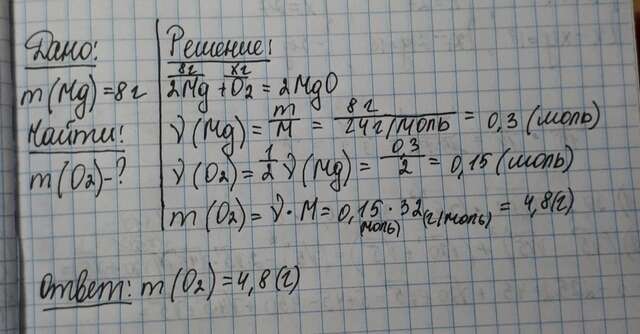 Дано:
m(Mg)=8г
Найти:
m(O₂)-?
Решение:
8г хг
2Mg + O₂ = 2MgO
ν(Mg) = m/M = 8 г/24 г/моль = 0,3 (моль)
ν(O₂) = 1/2 ν(Mg) = 0,3/2 = 0,15 (моль)
m(O₂) = ν·M = 0,15 · 32 = 4,8(г)
(моль) (г/моль)
Ответ: m(O₂) = 4,8(г)